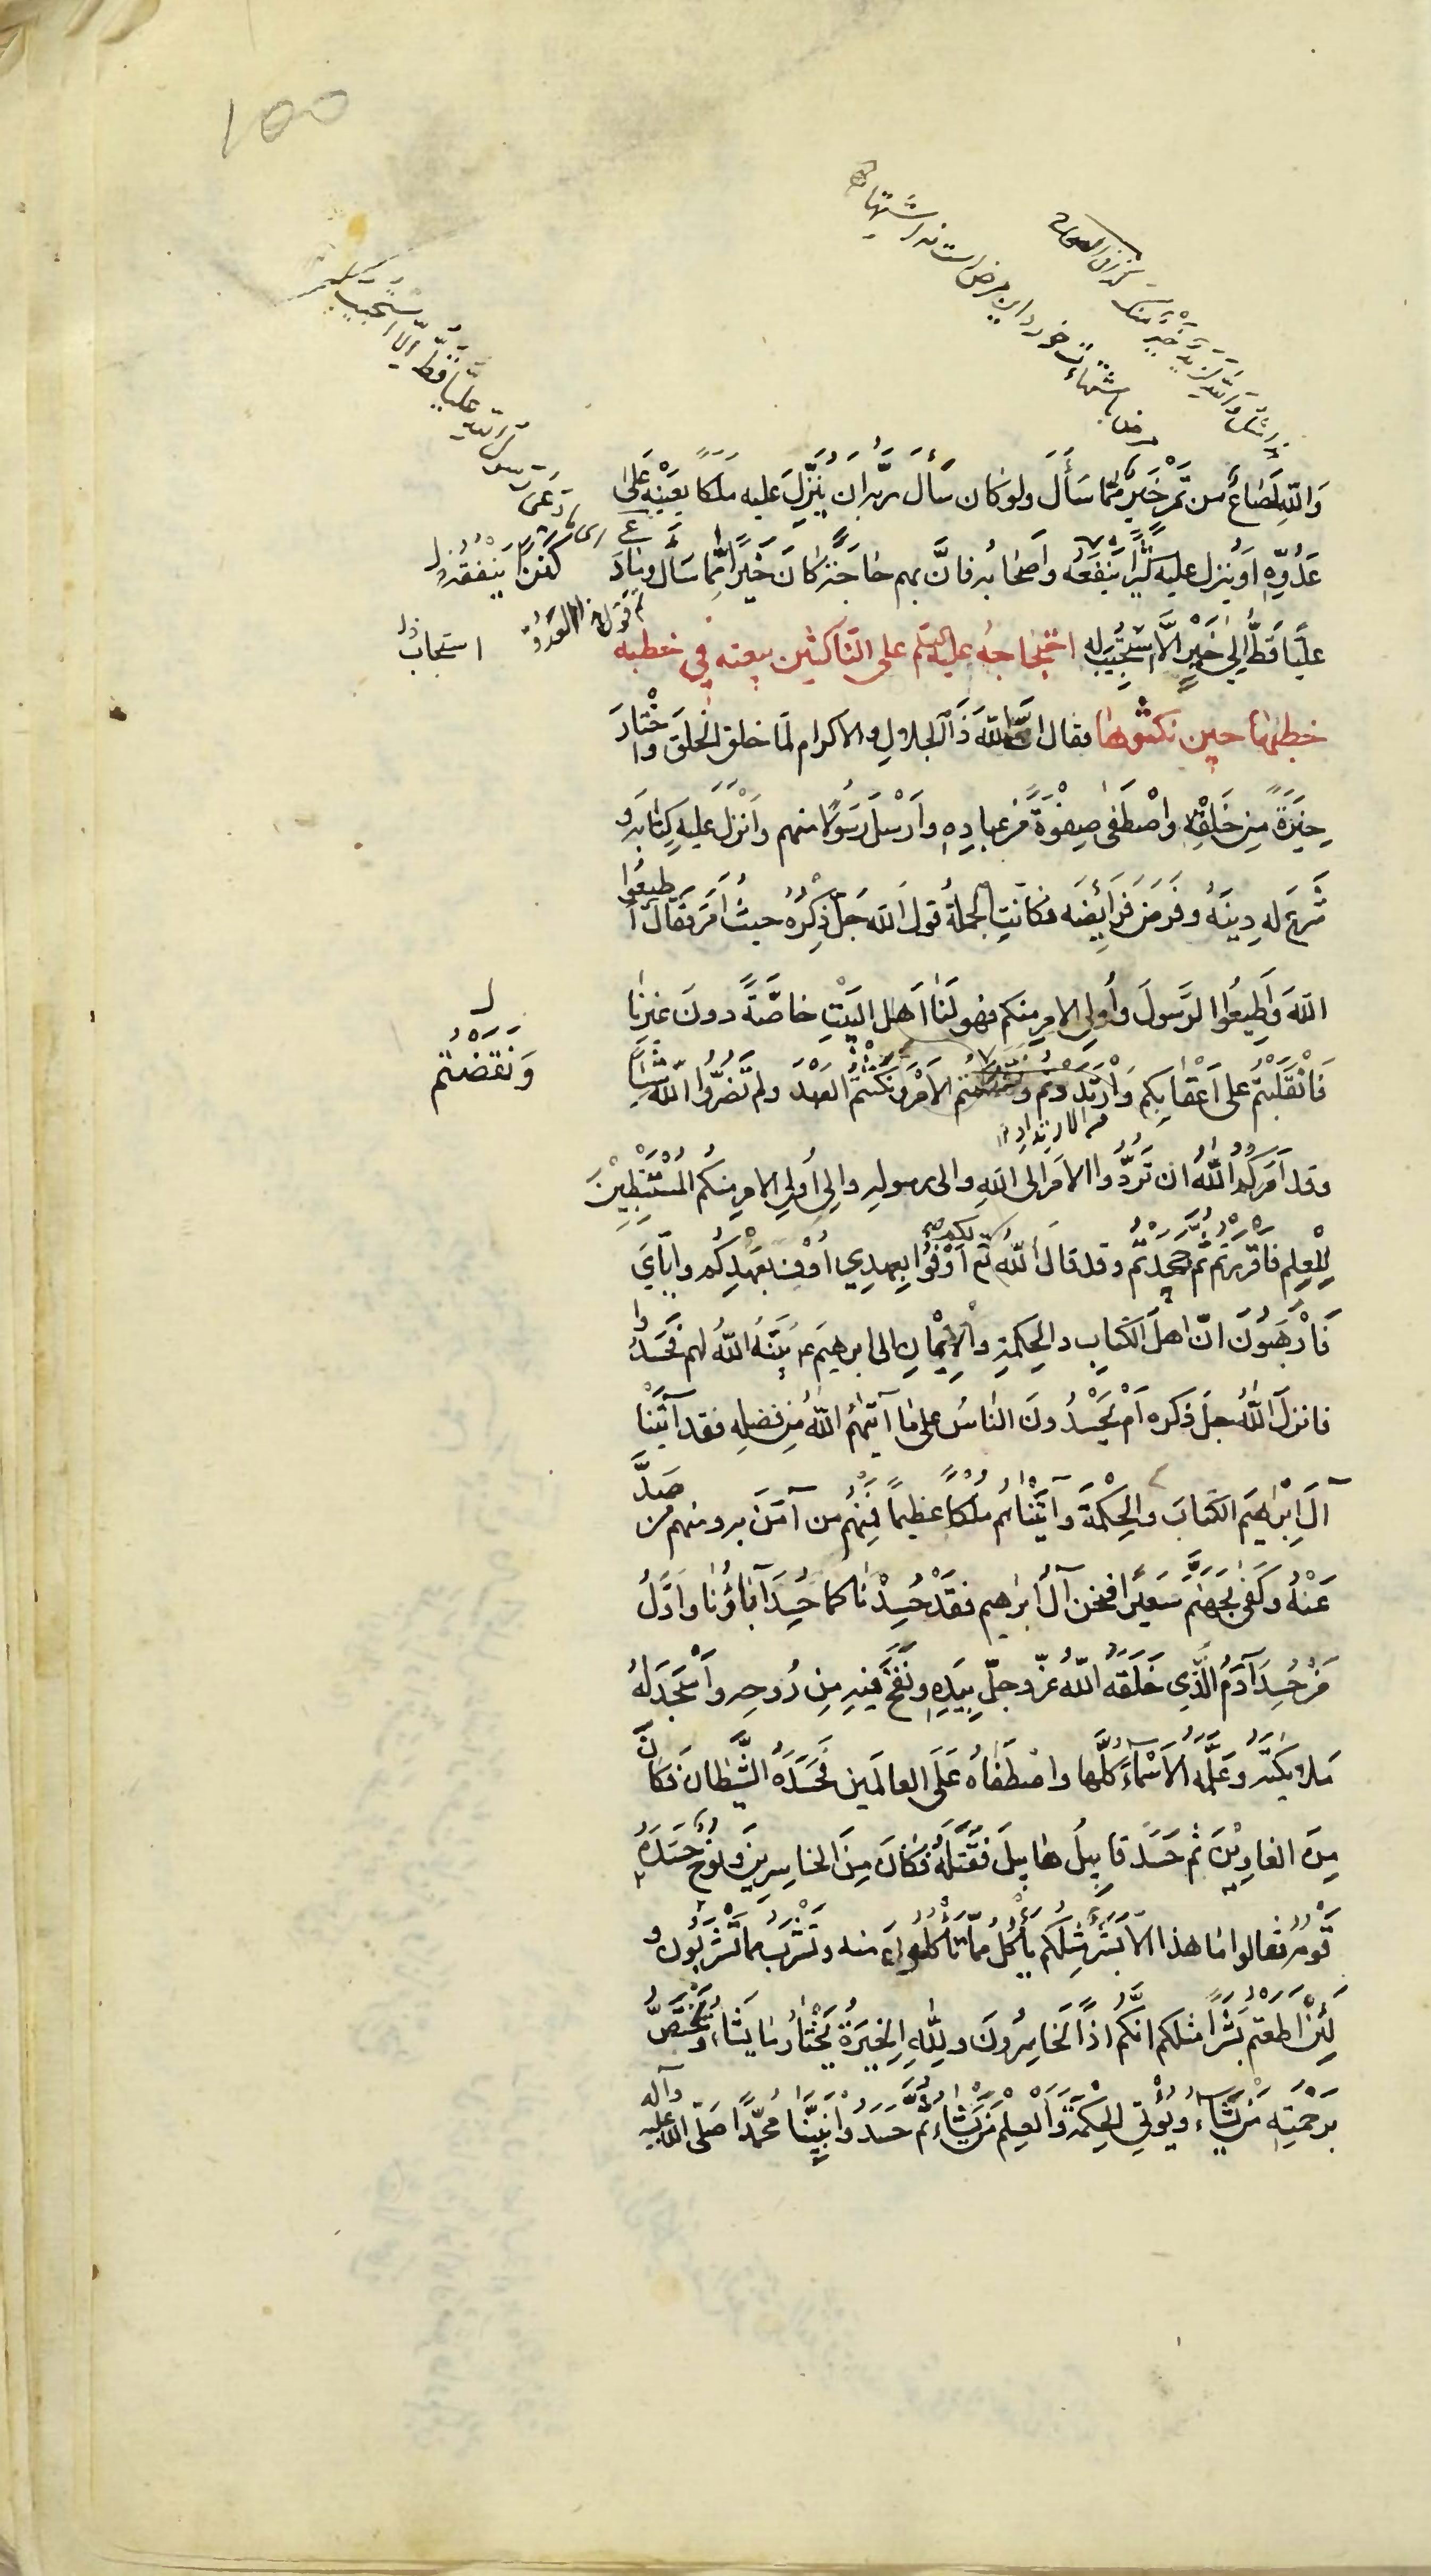 100
وَاللّٰهِ لَصَاعٌ من تَمْرٍ خَيرٌ مِمّا سَأَلَ ولو كان سَأَلَ ربَّه اَن يُنَزِّلَ عليه مَلَكًا يُعينُه عَلىٰ
عَدُوِّهِ اَو يُنزل عليه كنزًا يَنْفَعُه وأصحابُه فانَّ بهم حاجَةً كانَ خَيرًا مِمّا سَأل وما دعَا
كنزًا يُنفقُه ل
عليًّا قَطُّ اِلى خَيْرٍ اِلّا اسْتُجيبَ له احتجاجُه عليه السلم على الناكثين بيعته في خطبه
استجاب ل
خطبها حين نكثوها فقال انّ اللّٰهَ ذَا الجلالِ والاكرام لمّا خلق الخلقَ واخْتارَ
خِيَرَةً مِن خَلقِه واصْطَفى صِفْوَةً من عبادِهِ وأرْسلَ رَسُولًا منهم وأنْزَلَ عَليهِ كِتابَه و
شَرعَ له دِينَهُ وفَرَضَ فَرائِضَه فكانَتِ الجملةُ قولَ الله جَلَّ ذِكرُهُ حيثُ اَمَرَ فقالَ أطيعُوا
اللّٰهَ وَأطِيعُوا الرَّسولَ وأُولِى الامرِ منكم فهو لَنا اَهلَ البَيْتِ خاصَّةً دونَ غيرِنا
فَانْقَلَبْتُم على اَعْقابِكم وَارْتَدَدْتُم ونقضتم الاَمْرَ ونكثتُم العَهْدَ ولم تَضُرُّوا اللّٰهَ شيئًا
وَنَقَضْتُم ل
من الارتداد
وقد اَمَركُم اللّٰهُ ان تَرُدُّوا الامرَ الى اللّٰهِ والى رسولِه والى اُولى الامرِ مِنكُم المُسْتَنْبِطِيْنَ
لِلْعِلمِ فاَقْرَرْتُم ثُمّ جَحَدْتُم وقد قالَ اللّٰهُ لكم اَوْفُوا بِعهدِي اُوْفِ بعَهْدِكُم واِيّايَ
فَارْهَبُونِ انّ اهلَ الكتابِ والحِكمةِ والاِيْمانِ الى ابرهيمَ ع بيّنَهُ اللّٰهُ لهم فَحَسَدُوا
فانزلَ اللّٰهُ جلّ ذكره اَمْ يَحْسُدُونَ الناسَ على ما آتيٰهُمُ اللّٰهُ مِن فضلِه فقد آتَيْنا
آلَ اِبْرٰهيمَ الكتابَ والحِكْمَةَ وآتَيْناهُم مُلْكًا عظيمًا فمِنْهُم من آمَنَ به ومنهم من صَدَّ
عَنْهُ وكَفى بجَهَنَّمَ سَعيرًا فنحن آلُ ابراهيم فقَدْ حُسِدْنا كما حُسِدَ آباؤُنا واَوَّلُ
مَن حُسِدَ آدمُ الَّذي خَلَقهُ اللّٰهُ عزّ وجلّ بِيَدِهِ ونَفخَ فيهِ مِن رُوحِه وأسْجَدَ لهُ
ملائكتَه وعَلَّمهُ الأسْماءَ كلَّها واصْطَفاهُ عَلَى العالَمينَ فحَسَدَهُ الشَّيطانُ فكانَ
مِنَ الغاوِيْنَ ثم حَسَدَ قابِيلُ هابيلَ فقَتَلَهُ فكانَ مِنَ الخاسِرِينَ ونوحٌ حَسَدَهُ
قَوْمُه فقالوا ما هذا الّا بَشَرٌ مِثلُكم يأكُلُ مِمّا تَأكُلونَ منه ويَشْرَبُ مما تَشْرَبُون و
لَئِنْ اطعتم بَشَرًا مثلكم انّكم اذًا لَخاسِرُونَ ولِلّٰهِ الخِيَرَةُ يَخْتارُ ما يَشاءُ ويَخْتَصُّ
بِرَحْمَتِهِ مَن يَشاءُ ويُؤْتِى الحِكْمَةَ والْعِلْمَ مَن يَشاءُ ثُمّ حَسَدُوا نَبِيَّنا محمّدًا صَلّى الله عليه وآله